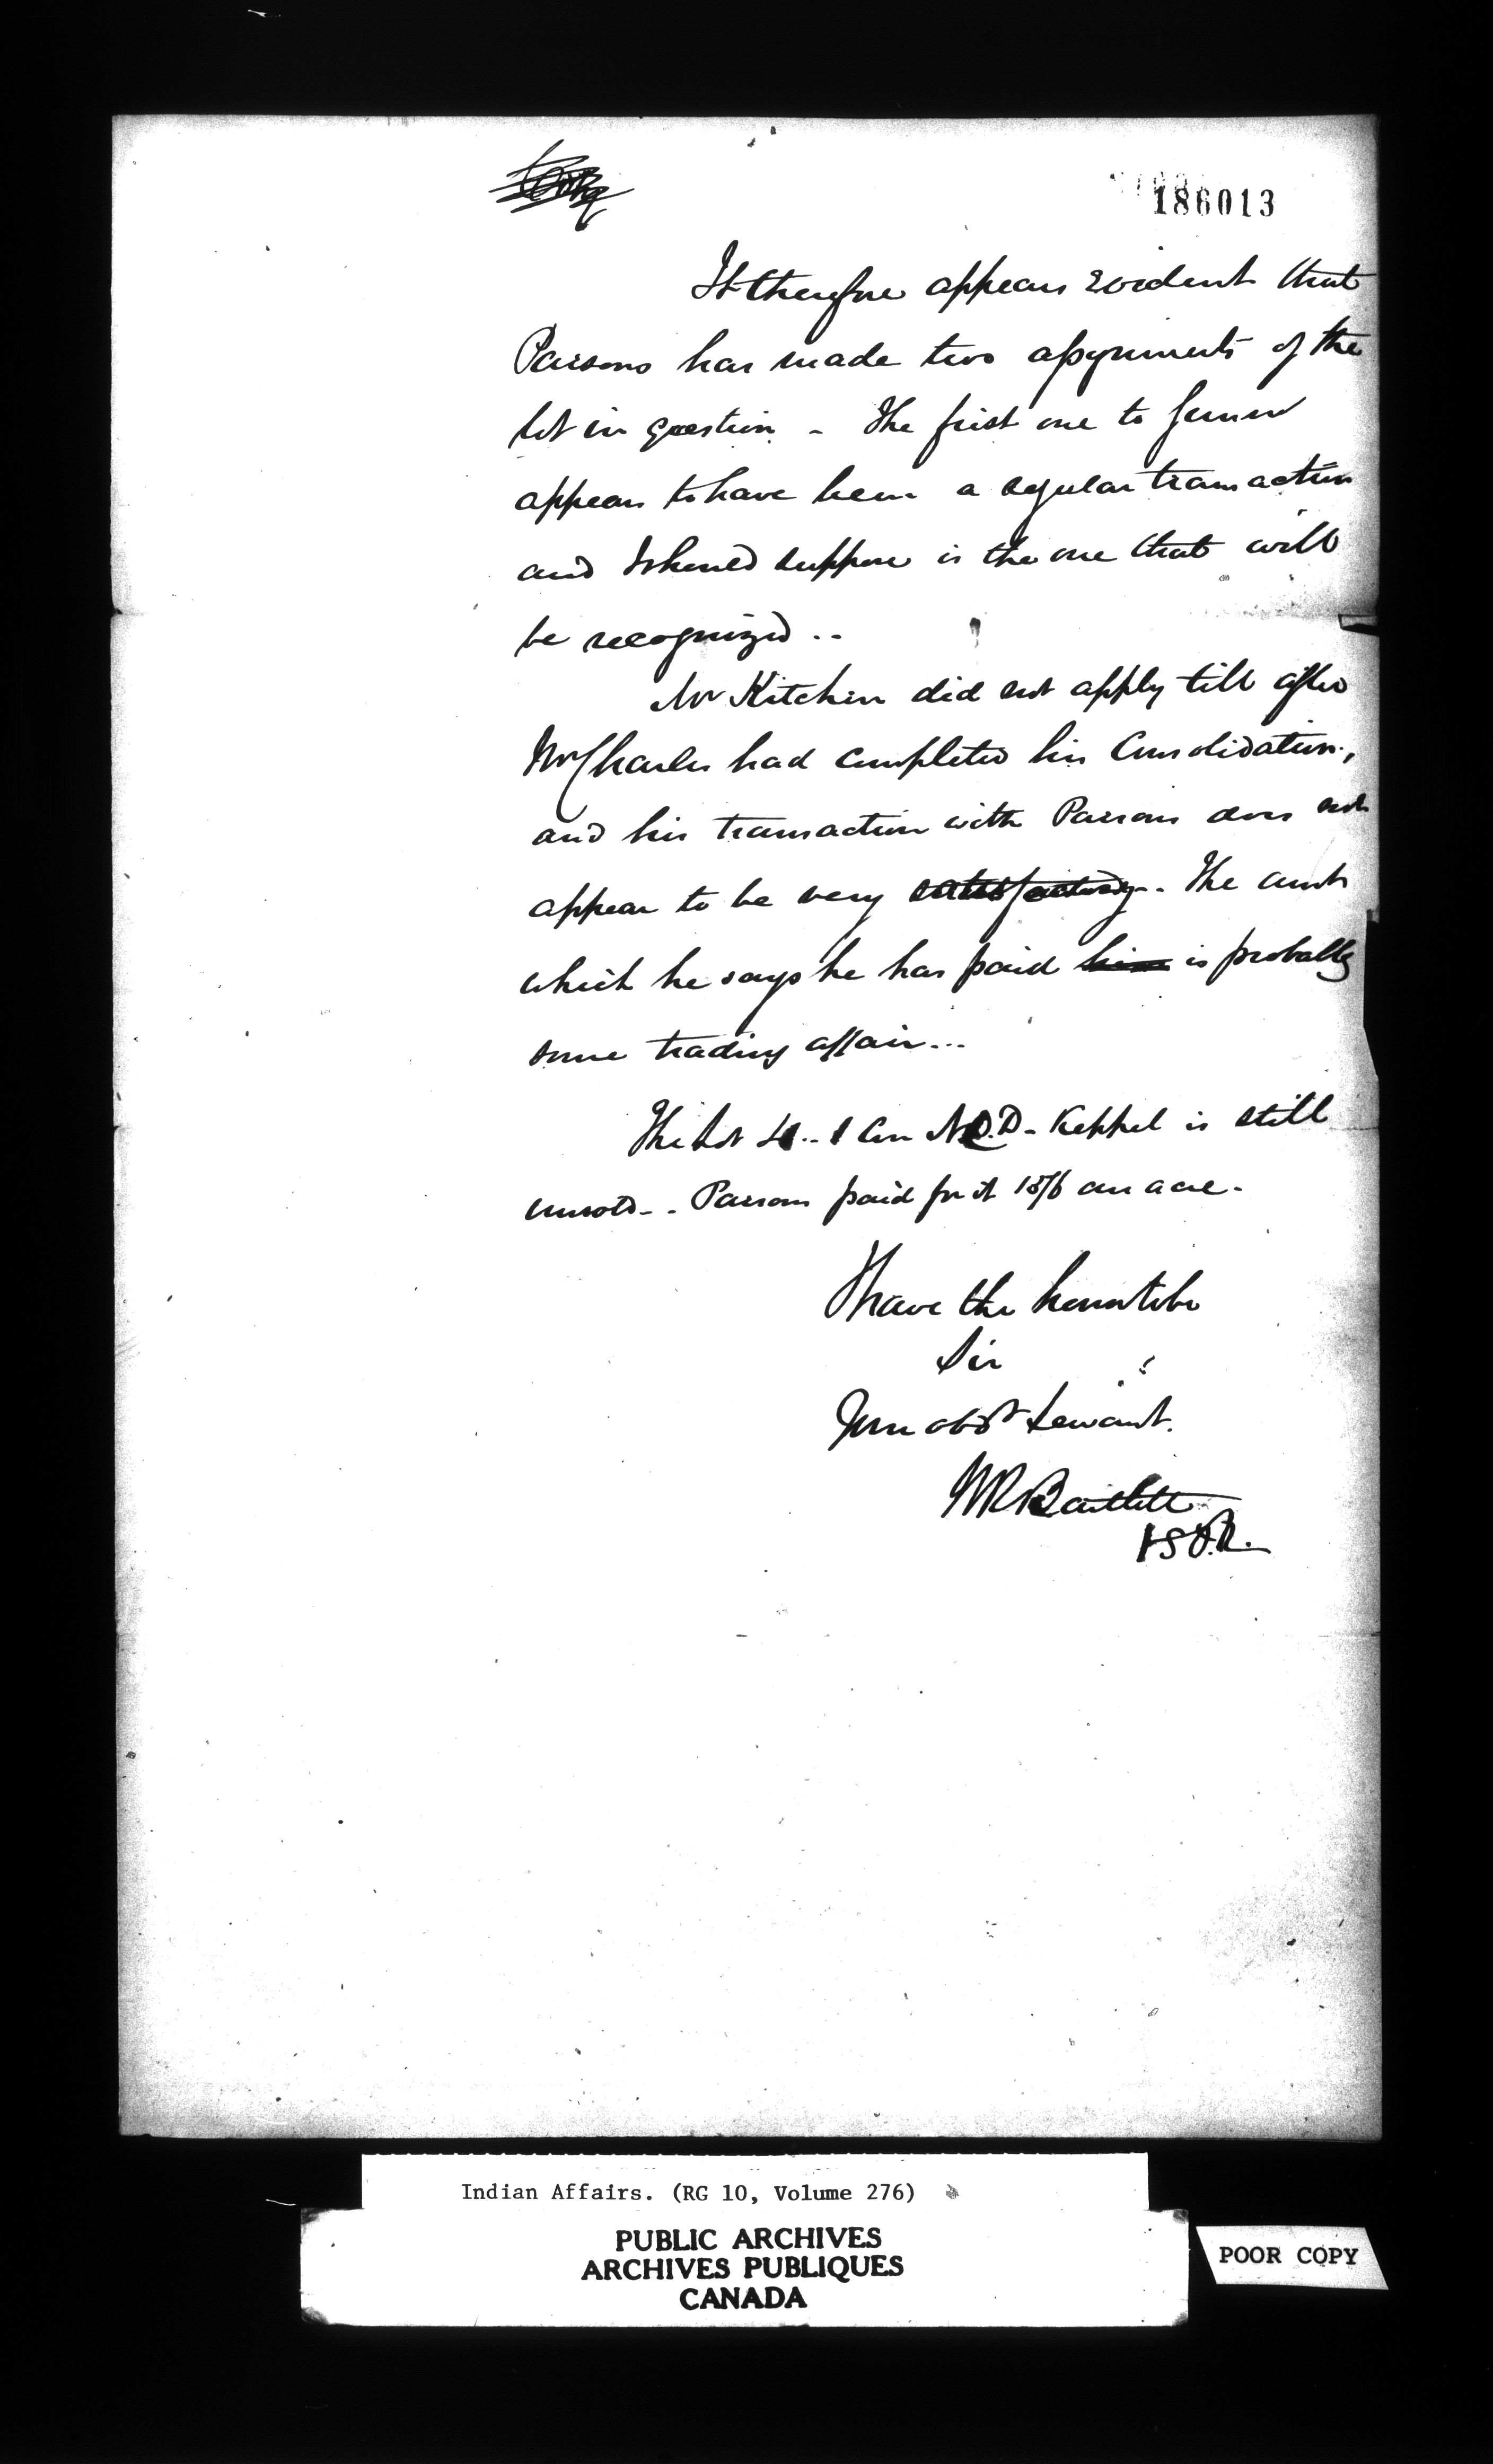 186013
It therefore appears evident that
Parsons has made two assignments of the
lot in question - The first one to
appears to have been a regular transaction
and I should suppose is the one that will
be recognized ..
Mr Kitchen did not apply till after
Mr Charles had completed his Consolidation,
and his transaction with Parsons does not
appear to be very satisfactory. The amt
which he says he has paid him is probably
some trading affair...
The Lot Con Keppel is still
unsold - Parsons paid for it an acre -
I have the honor to be
Sir
Your obdt Servant.
WR Bartlett
Indian Affairs. (RG 10, Volume 276)
PUBLIC ARCHIVES
ARCHIVES PUBLIQUES
CANADA
POOR COPY